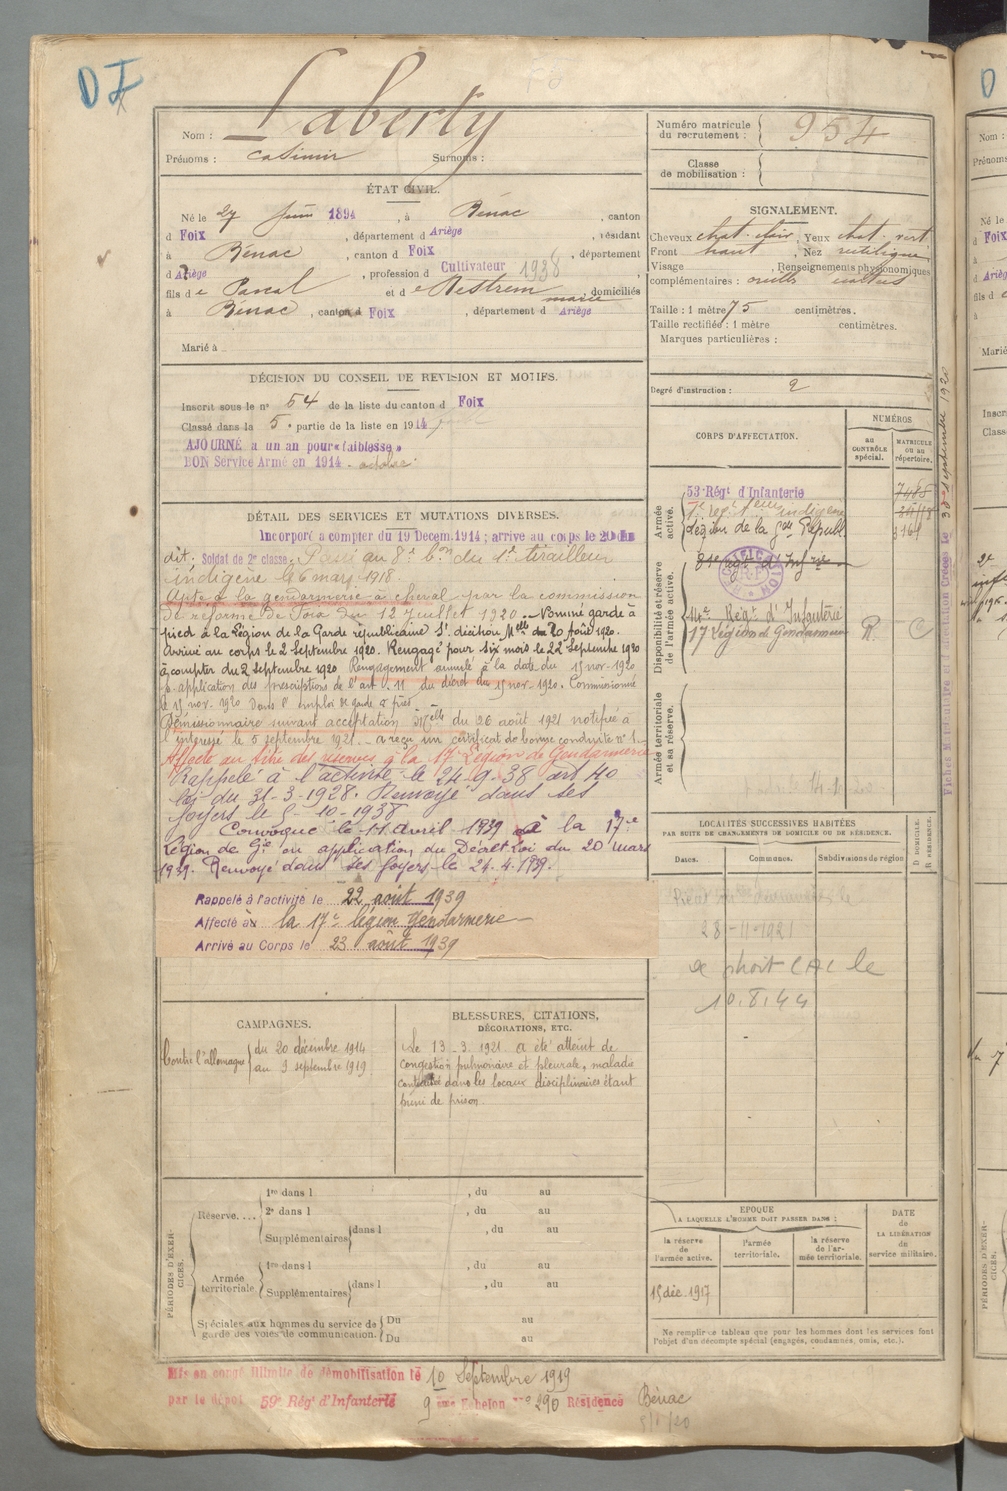 D I
Nom : Laberty
Prénoms : Casimir Surnoms :
ÉTAT CIVIL.
Né le 27 Juin 1894, à Bénac, canton
d Foix, département d Ariège, résidant
à Bénac, canton d Foix, département
d Ariège, profession d Cultivateur 1938
fils de Pascal et de Destrem marie, domiciliés
à Bénac, canton d Foix, département d Ariège
Marié à
DÉCISION DU CONSEIL DE REVISION ET MOTIFS.
Inscrit sous le n° 54 de la liste du canton d Foix
Classé dans la 5e partie de la liste en 1914
AJOURNÉ a un an pour «faiblesse»
BON Service Armé en 1914 - octobre
DÉTAIL DES SERVICES ET MUTATIONS DIVERSES.
Incorporé a compter du 19 Decem. 1914 ; arrivé au corps le 20
dit. Soldat de 2e classe. Passé au 8e bon du 1er tirailleur
indigène le 6 mars 1918
Apte à la gendarmerie à cheval par la commission
de réforme de Foix du 12 Juillet 1920. Nommé garde à
pied à la Légion de la Garde républicaine St. décision Melle du 20 Août 1920.
Arrivé au corps le 2 Septembre 1920. Rengagé pour six mois le 22 Septembre 1920
à compter du 2 septembre 1920 Rengagement annulé à la date du 15 nov. 1920
p. application des prescriptions de l'art. 11 du décret du 15 nov. 1920. Commissionné
le 15 nov. 1920 dans l'emploi de garde à pied
Démissionnaire suivant acceptation Melle du 26 août 1921 notifiée à
l'intéressé le 5 septembre 1921. a reçu un certificat de bonne conduite n° 1.
Affecté au titre des réserves à la 17e Légion de Gendarmerie
Rappelé à l'activité le 24-9-38 art 40
loi du 31-3-1928. Renvoyé dans ses
foyers le 5-10-1938
Convoqué le 11 avril 1939 à la 17e
Légion de Gie en application du Décret Loi du 20 mars
1939. Renvoyé dans ses foyers le 24.4.1939.
Rappelé à l'activité le 22 août 1939
Affecté au la 17e légion gendarmerie
Arrivé au Corps le 23 août 1939
CAMPAGNES.
Contre l'allemagne du 20 décembre 1914
au 9 septembre 1919
BLESSURES, CITATIONS,
DÉCORATIONS, ETC.
Le 13-3-1921 a été atteint de
congestion pulmonaire et pleurale, maladie
contractée dans les locaux disciplinaires étant
puni de prison
PÉRIODES D'EXERCICES.
Réserve....
1re dans l , du au
2e dans l , du au
Supplémentaires dans l , du au
Armée territoriale
1re dans l , du au
Supplémentaires dans l , du au
Spéciales aux hommes du service de garde des voies de communication.
Du au
Du au
Mis en congé illimité de démobilisation le 10 Septembre 1919
par le dépôt 59e Régt d'Infanterie 9ème Echelon N° 290 Résidence Bénac
Numéro matricule
du recrutement : 954
Classe
de mobilisation :
SIGNALEMENT.
Cheveux chat. clair, Yeux chat. vert
Front haut, Nez rectiligne
Visage , Renseignements physionomiques
complémentaires : oreilles écartées
Taille : 1 mètre 75 centimètres.
Taille rectifiée : 1 mètre centimètres.
Marques particulières :
Degré d'instruction : 2
CORPS D'AFFECTATION.
NUMÉROS
au
CONTRÔLE
spécial.
MATRICULE
ou au
répertoire.
Armée active.
53 Régt d'Infanterie 7485
Légion de la gde Républ. 3164
Disponibilité et réserve de l'armée active.
14e Régt d'Infanterie
17 Légion de Gendarmerie R. C
RECTIFICATION
Armée territoriale et sa réserve.
LOCALITÉS SUCCESSIVES HABITÉES
PAR SUITE DE CHANGEMENTS DE DOMICILE OU DE RÉSIDENCE.
Dates. Communes. Subdivisions de région
D DOMICILE.
R RÉSIDENCE.
28-11-1921
le
10.8.44
EPOQUE
A LAQUELLE L'HOMME DOIT PASSER DANS :
la réserve
de
l'armée active.
l'armée
territoriale.
la réserve
de l'armée territoriale.
DATE
de
LA LIBÉRATION
du
service militaire.
15 déc. 1917
Ne remplir ce tableau que pour les hommes dont les services font
l'objet d'un décompte spécial (engagés, condamnés, omis, etc.).